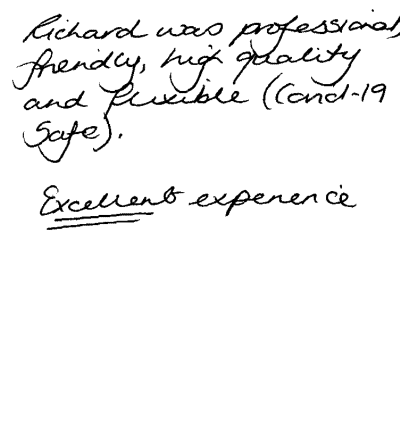 Richard was professional,
friendly, high quality
and flexible (Covid-19
Safe).
Excellent experience